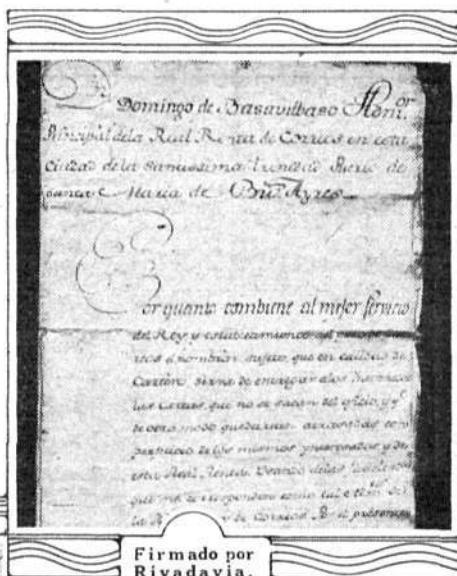 Domingo de Basavilbaso Adm.or
Principal de la Real Renta de Correos en esta
ciudad de la Santissima Trinidad Puerto de
Santa Maria de Bu.s Ayres
Por quanto combiene al mejor servicio
del Rey y establecimiento del
nombrar sujeto, que en calidad de
Cartero sirva de entregar a los
las Cartas, que no se sacan del oficio, y q.e
de otro modo quedarian atrasadas con
perjuicio de los mismos ynteresados y de
esta Real Renta. Usando de las
que me corresponden como tal
la R y de Correos Por el presente
Firmado por
Rivadavia.